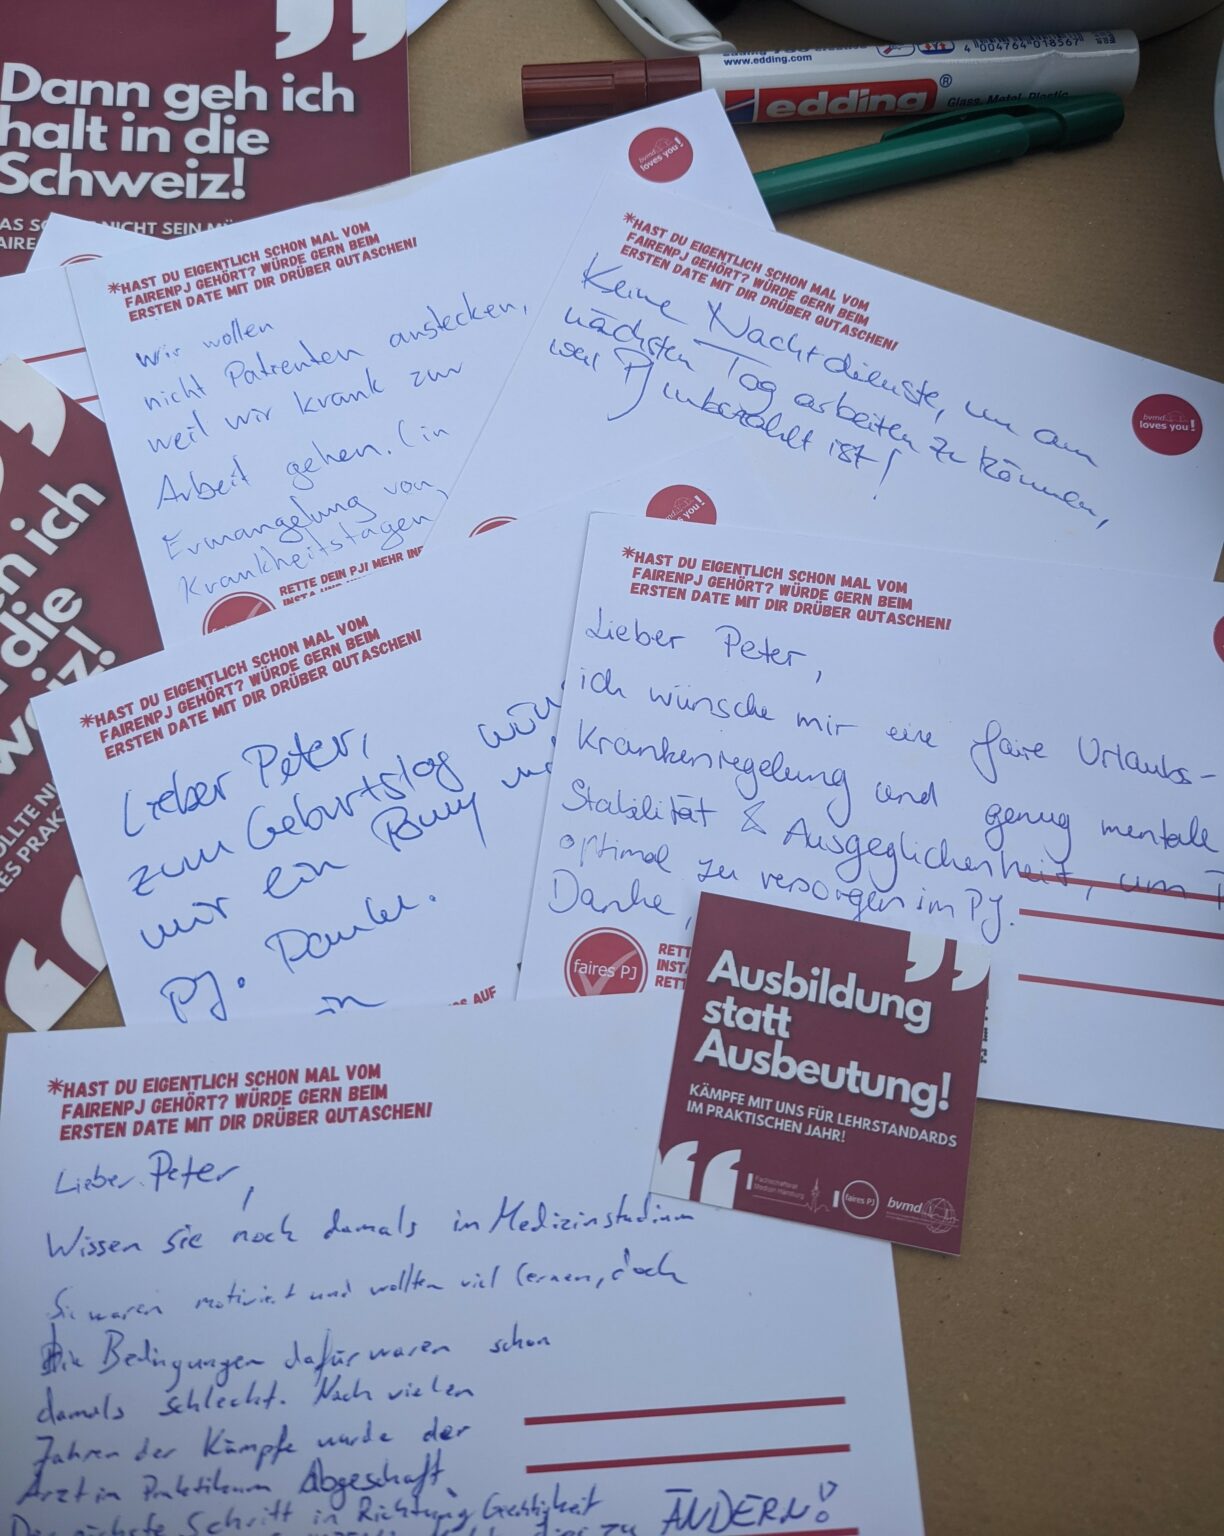 Dann geh ich
halt in die
Schweiz!
NICHT SEIN
edding
www.edding.com
4 004764 018567
edding®
Glass, Metal, Plastic
bvmd
loves you!
*HAST DU EIGENTLICH SCHON MAL VOM
FAIRENPJ GEHÖRT? WÜRDE GERN BEIM
ERSTEN DATE MIT DIR DRÜBER QUTASCHEN!
wir wollen
nicht Patienten anstecken,
weil wir krank zur
Arbeit gehen. (in
Ermangelung von
Krankheitstagen
RETTE DEIN PJ! MEHR
*HAST DU EIGENTLICH SCHON MAL VOM
FAIRENPJ GEHÖRT? WÜRDE GERN BEIM
ERSTEN DATE MIT DIR DRÜBER QUTASCHEN!
Keine Nachtdienste, um am
nächsten Tag arbeiten zu können,
weil PJ unbezahlt ist!
bvmd
loves you!
ich
die
loves you!
*HAST DU EIGENTLICH SCHON MAL VOM
FAIRENPJ GEHÖRT? WÜRDE GERN BEIM
ERSTEN DATE MIT DIR DRÜBER QUTASCHEN!
Lieber Peter,
zum Geburtstag
mir ein
PJ. Danke.
AUF
*HAST DU EIGENTLICH SCHON MAL VOM
FAIRENPJ GEHÖRT? WÜRDE GERN BEIM
ERSTEN DATE MIT DIR DRÜBER QUTASCHEN!
Lieber Peter,
ich wünsche mir eine faire Urlaubs-
Krankenregelung und genug mentale
Stabilität & Ausgeglichenheit, um
optimal zu versorgen im PJ.
Danke,
faires PJ
Ausbildung
statt
Ausbeutung!
KÄMPFE MIT UNS FÜR LEHRSTANDARDS
IM PRAKTISCHEN JAHR!
Fachschaftsrat
Medizin Hamburg
faires PJ
bvmd
*HAST DU EIGENTLICH SCHON MAL VOM
FAIRENPJ GEHÖRT? WÜRDE GERN BEIM
ERSTEN DATE MIT DIR DRÜBER QUTASCHEN!
Lieber Peter,
Wissen Sie noch damals im Medizinstudium
Sie waren motiviert und wollten viel lernen, doch
Die Bedingungen dafür waren schon
damals schlecht. Nach vielen
Jahren der Kämpfe wurde der
Arzt im Praktikum Abgeschaft.
Der nächste Schritt in Richtung
zu ÄNDERN!